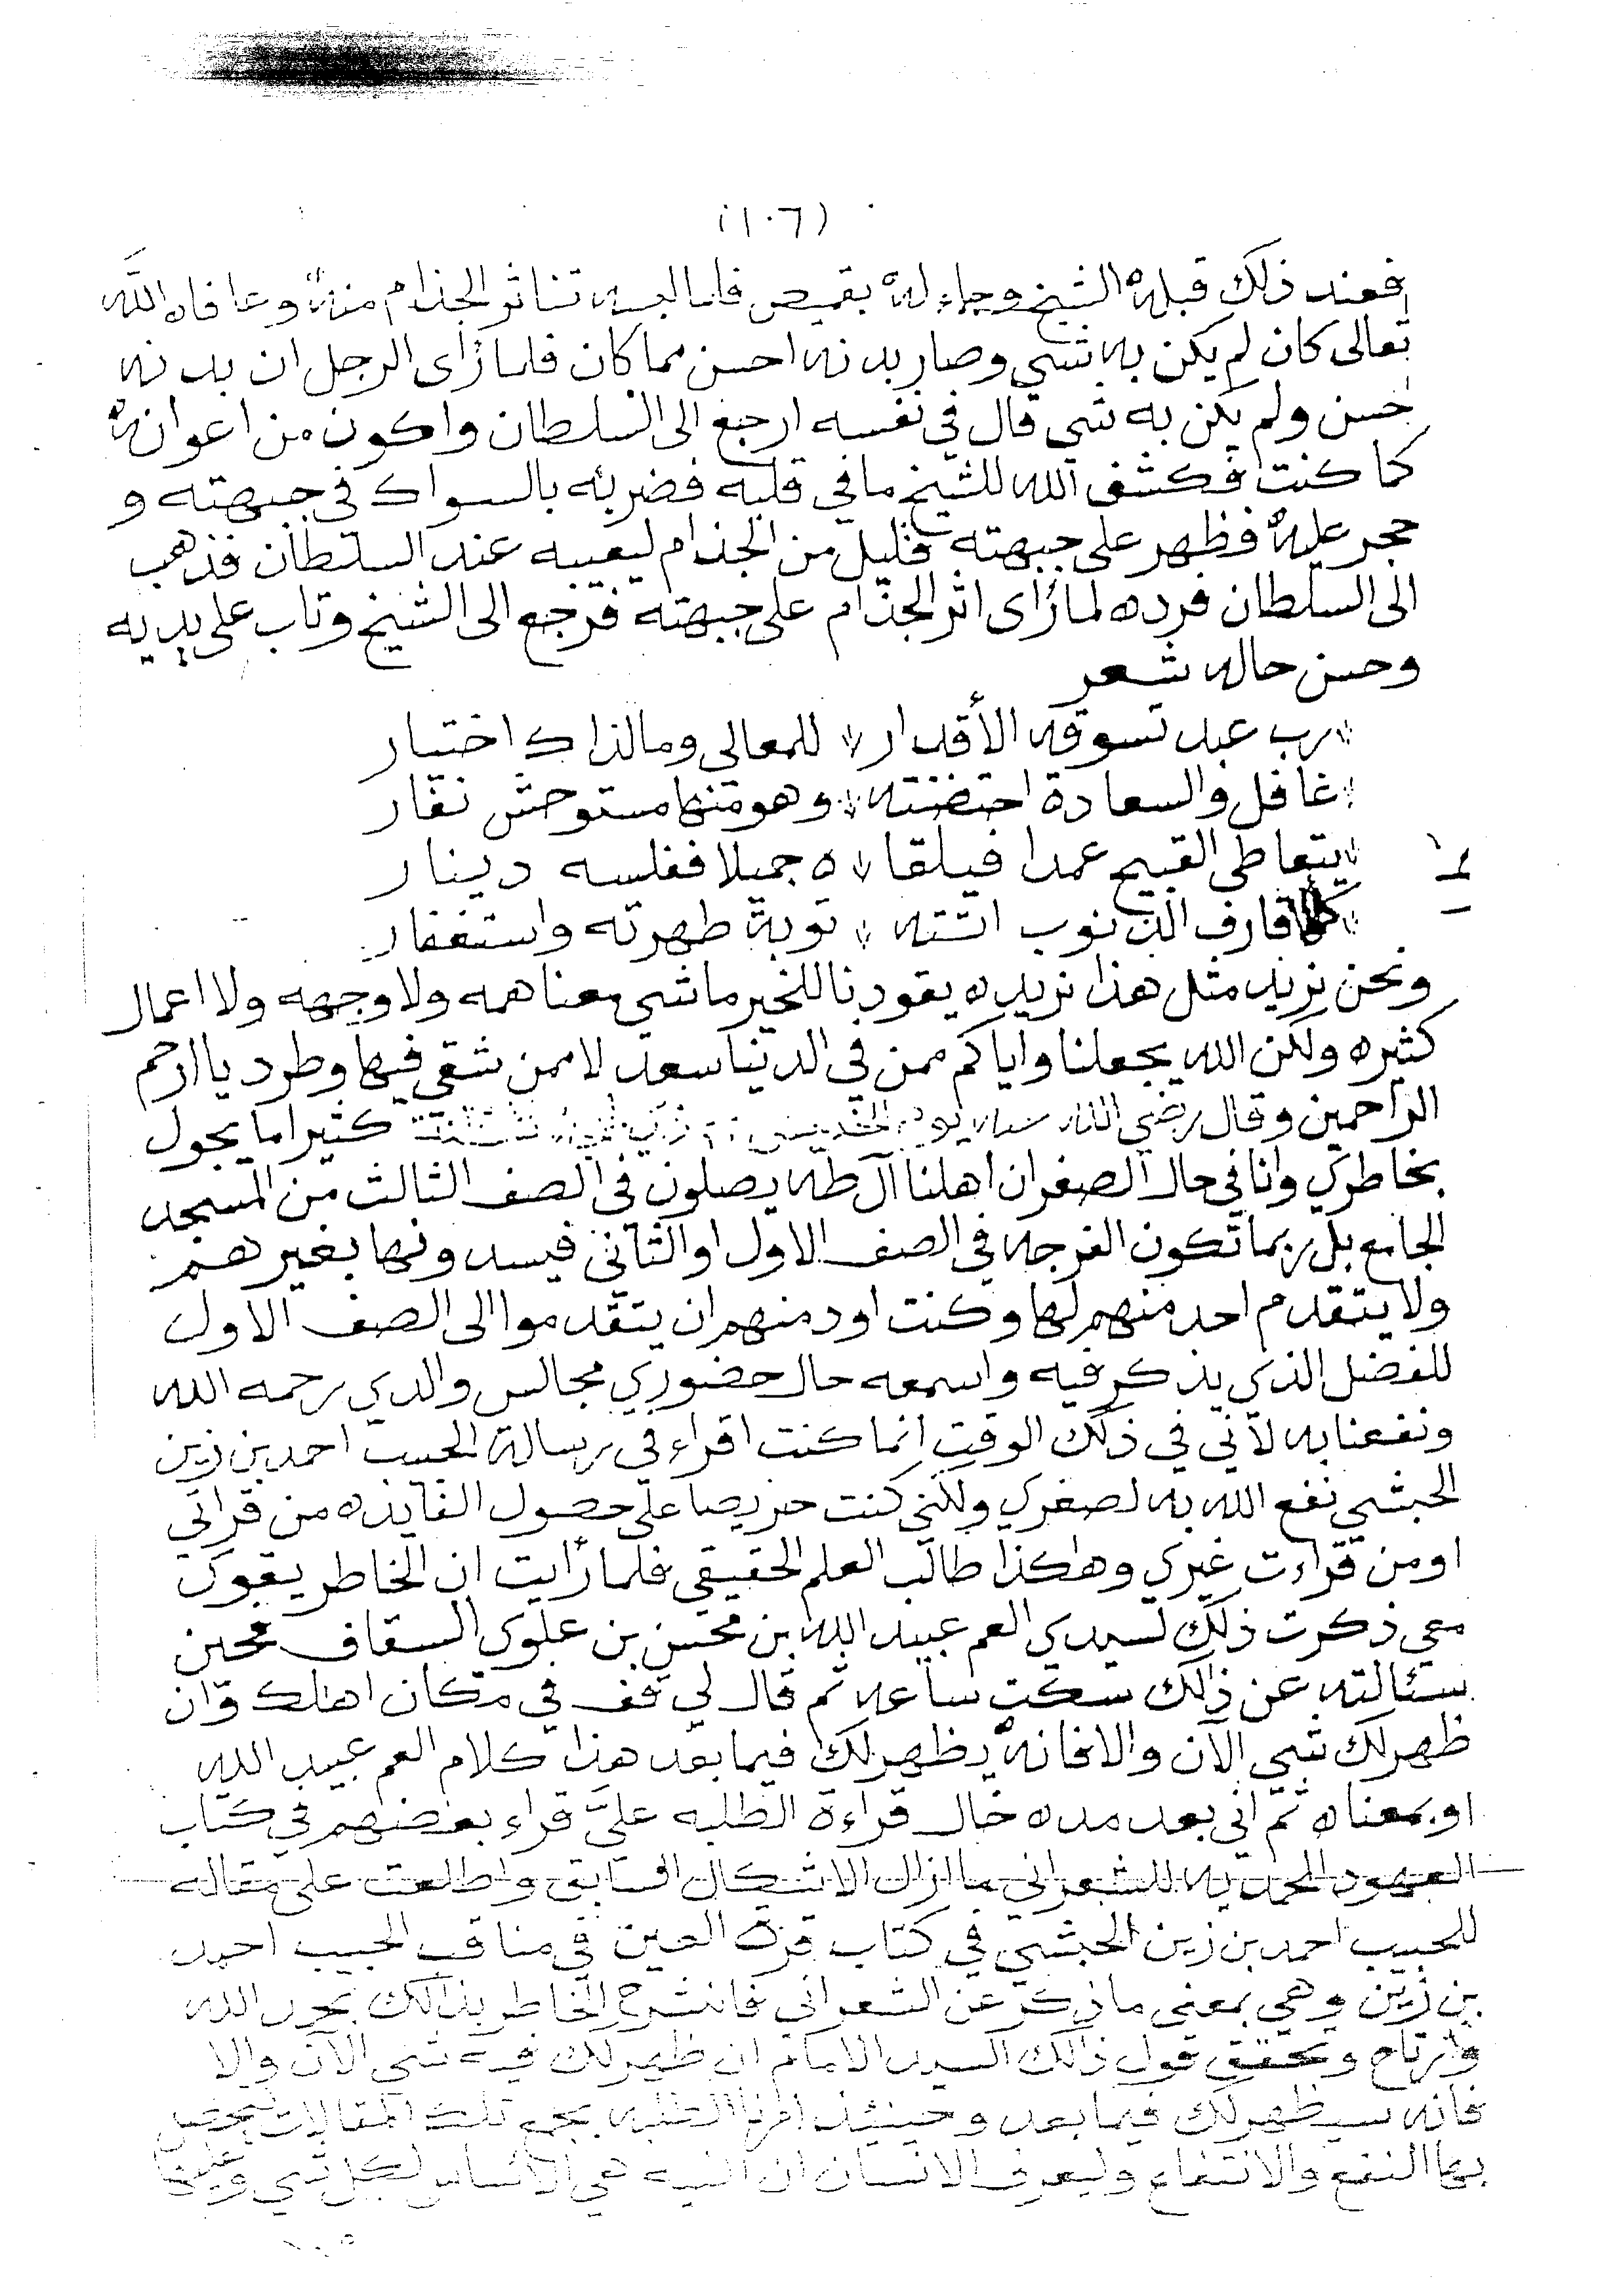 (١٠٦)
فعند ذلك قبله الشيخ وجاء له بقميص فلما لبسه تناثر الجذام منه وعافاه الله
تعالى كان لم يكن به شي وصار بدنه احسن مما كان فلما رأى الرجل ان بدنه
حسن ولم يكن به شي قال في نفسه ارجع الى السلطان واكون من اعوانه
كما كنت فكشف الله للشيخ ما في قلبه فضربه بالسواك في جبهته و
حجر عليه فظهر على جبهته قليل من الجذام ليعيبه عند السلطان فذهب
الى السلطان فرده لما رأى اثر الجذام على جبهته فرجع الى الشيخ وتاب على يديه
وحسن حاله شعر
رب عبد تسوقه الأقدار للمعالي وما لذاك اختيار
غافل والسعادة احتضنته وهو منها مستوحش نفار
يتعاطى القبيح عمدا فيلقا ه جميلا ففلسه دينار
كلما قارف الذنوب اتته توبة طهرته واستغفار
ونحن نريد مثل هذا نريده يقودنا للخير ما شي معنا همه ولا وجهه ولا اعمال
كثيره ولكن الله يجعلنا واياكم ممن في الدنيا سعد لا ممن شقي فيها وطرد يا ارحم
الراحمين وقال رضي الله عنه يوم الخميس كثيرا ما يجول
بخاطري وانا في حال الصغر ان اهلنا آل طه يصلون في الصف الثالث من المسجد
الجامع بل ربما تكون الفرجه في الصف الاول او الثاني فيسدونها بغيرهم
ولا يتقدم احد منهم لها وكنت اود منهم ان يتقدموا الى الصف الاول
للفضل الذي يذكر فيه واسمعه حال حضوري مجالس والدي رحمه الله
ونفعنا به لأني في ذلك الوقت انما كنت اقراء في رسالة الحبيب احمد بن زين
الحبشي نفع الله به لصغري ولكني كنت حريصا على حصول الفايده من قراتي
او من قراءت غيري وهاكذا طالب العلم الحقيقي فلما رأيت ان الخاطر يقوى
معي ذكرت ذلك لسيدي العم عبيد الله بن محسن بن علوي السقاف فحين
سئالته عن ذالك سكت ساعه ثم قال لي قف في مكان اهلك وان
ظهر لك شي الآن والا فانه يظهر لك فيما بعد هذا كلام العم عبيد الله
او بمعناه ثم اني بعد مده حال قراءة الطلبه عليّ قراء بعضهم في كتاب
العهود المحمديه للشعراني ما ازال الاشكال السابق واطلعت على مقاله
للحبيب احمد بن زين الحبشي في كتاب قرة العين في مناقب الحبيب احمد
بن زين وهي بمعنى ما ذكر عن الشعراني فانشرح الخاطر بذالك بحمد الله
وارتاح وتحقق قول ذالك السيد الامام ان ظهر لك فيه شي الآن والا
فانه سيظهر لك فيما بعد وحينئذ الطلبه بجمع تلك المقالات
بها النفع والانتفاع وليعرف الانسان ان النيه هي الأساس لكل شي وعليها